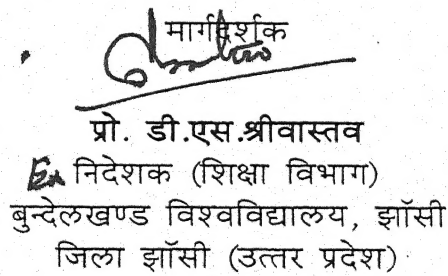 मार्गदर्शक
प्रो. डी.एस.श्रीवास्तव
Ex निदेशक (शिक्षा विभाग)
बुन्देलखण्ड विश्वविद्यालय, झॉसी
जिला झॉसी (उत्तर प्रदेश)